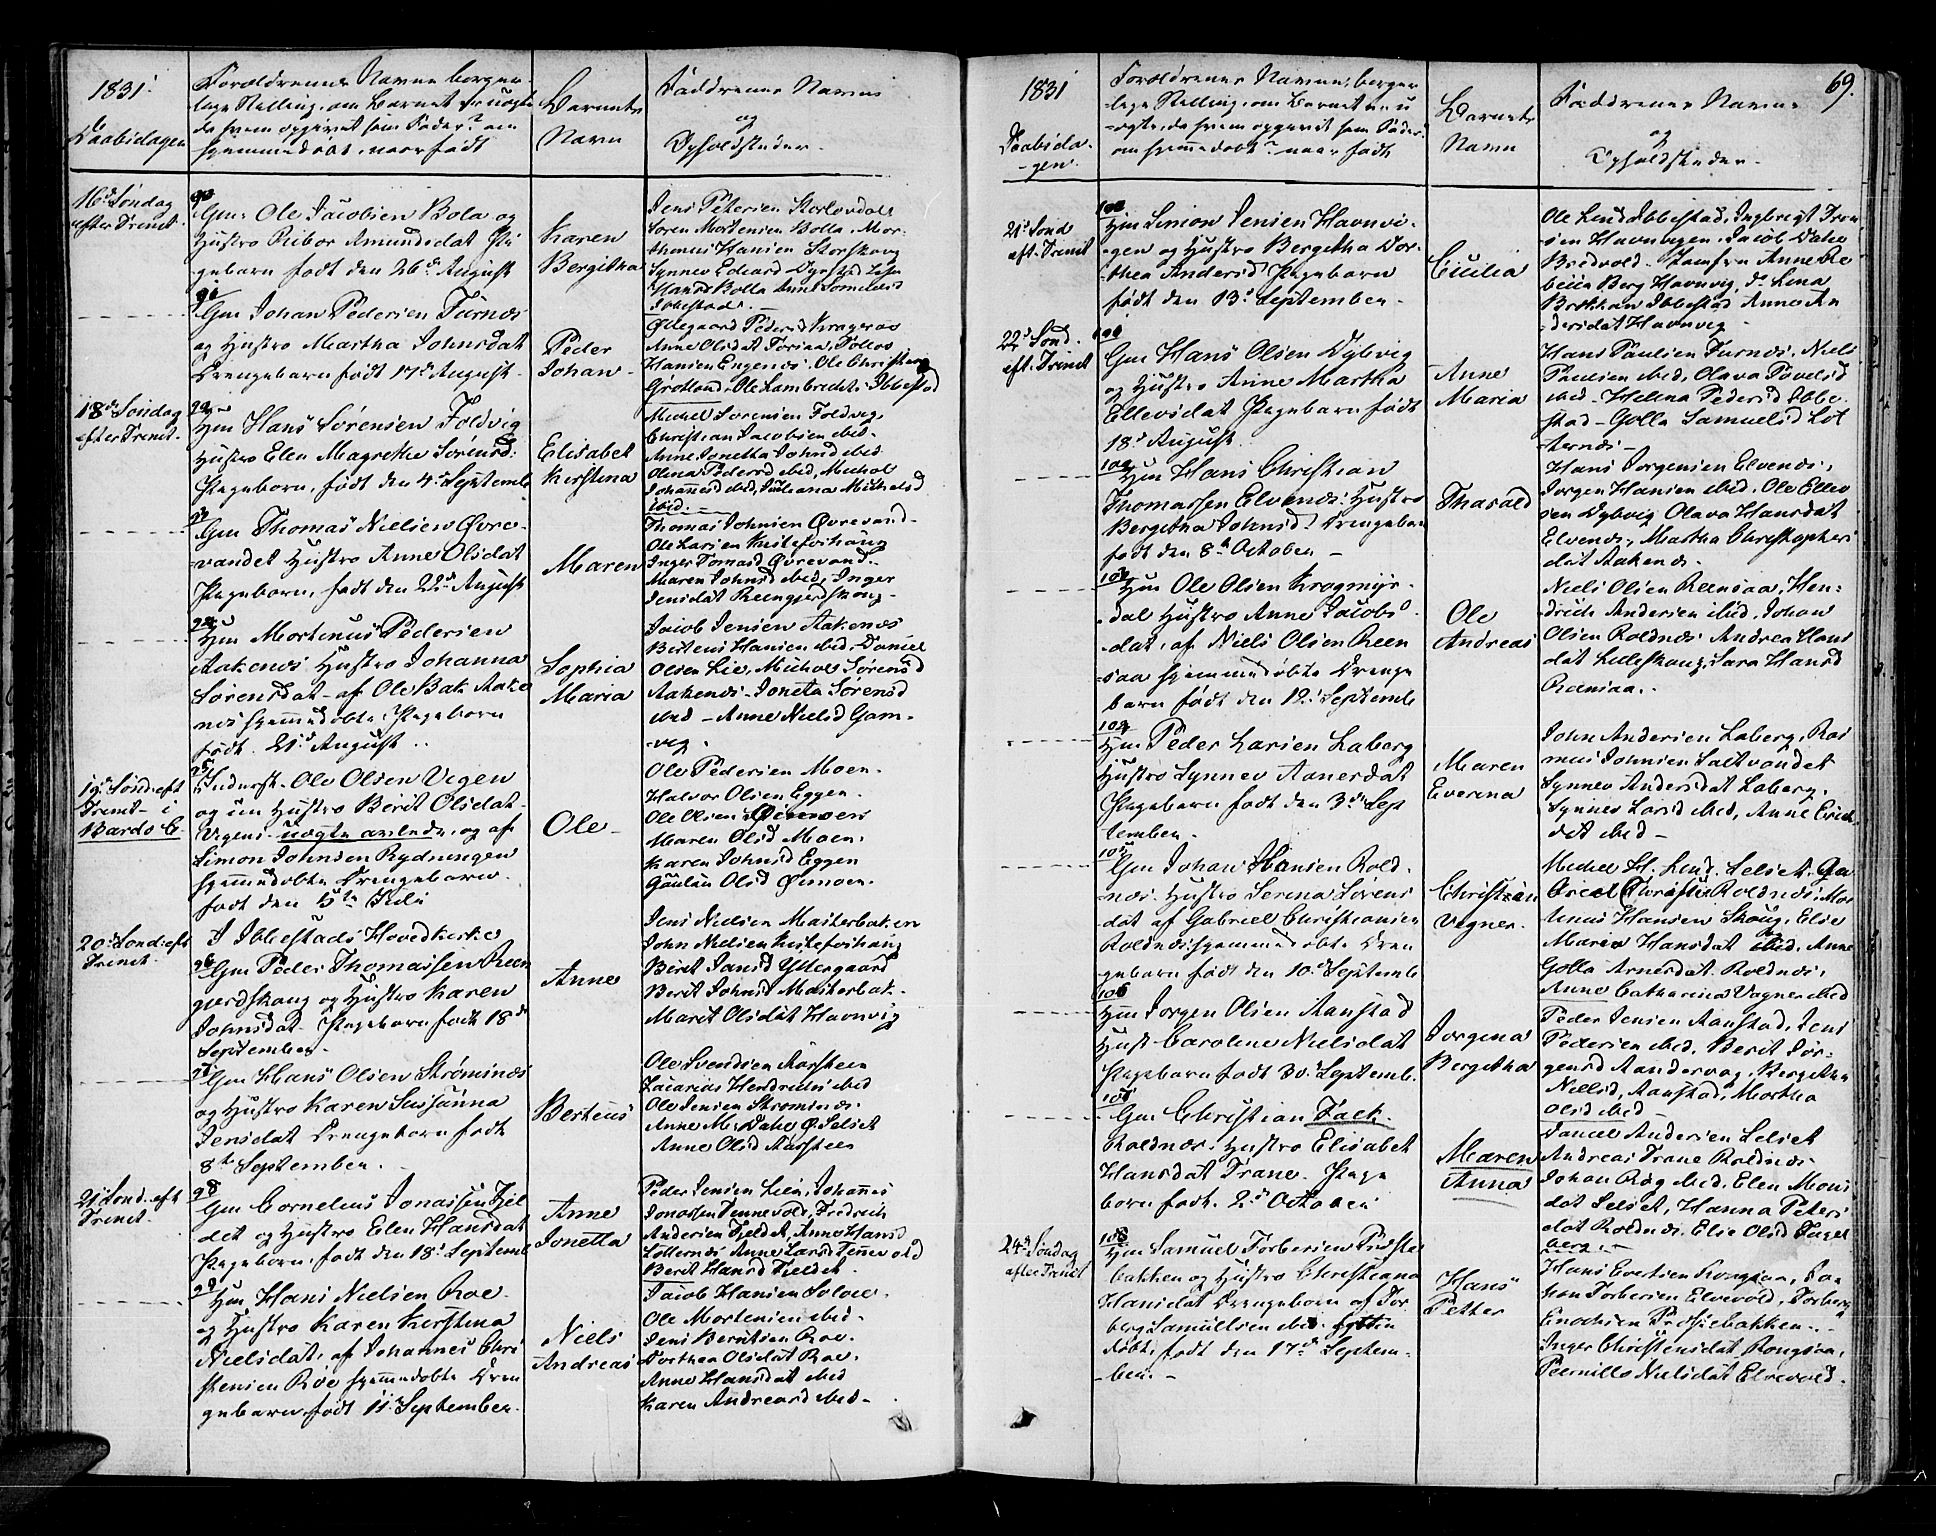 1831.
Daabsdagen
Forældrenes Navne borger-
lige Stilling, om Barnet er uægte
da hvem opgivet som Fader? om
hjemmedøbt, naar født
Barnets
Navn
Faddrenes Navne
og
Opholdsteder.
16d Søndag
efter Trinit.
90
Gm: Ole Jacobsen Bolla og
Hustro Ribor Amundsdat Pi
gebarn født den 26d August
Karen
Bergitha
Jens Petersen
Søren Mortensen Bolla, Mor-
thenus Hansen Storskoug
Synnev
Hans Bolla Anne
Ibbestad.
91
Gm Johan Pedersen Furnes
og Hustro Martha Johnsdat
Drengebarn født 17d August.
Peder
Johan
Øllegaard Pedersd Krageraas
Anne Olsdat
Hansen Engenes. Ole Christian
Grotland. Ole Lambrechts Ibbestad
18d Søndag
efter Trinit.
92
Hm Hans Sørensen Foldvig
Hustro Elen Magrethe Sørensd:
Pigebarn, født den 4d Septemb
Elisabet
Kirstina
Michel Sørensen Foldvig,
Christian Jacobsen ibid.
Anne Jonetta Johnsd ibid
Olina Pedersd ibid, Michal
Johannesd ibid, Juliana Michelsd
ibid.
93
Gm Thomas Nielsen Øvre-
vandet Hustro Anne Olsdat
Pigebarn, født den 22d August
Maren
Thomas Johnsen Øvrevand-
Ole Larsen Kistefoshoug
Inger Tomasd Øvrevand.
Maren Johnsd ibid, Inger
Jensdat Reengjerdskoug.
94
Hm Mortinus Pedersen
Aakenes Hustro Johanna
Sørensdat - af Ole Bak Aake
nes hjemmedøbte Pigebarn
født. 21d August ..
Sophia
Maria
Jacob Jensen Aakenes
Bertens Hansen ibid, Daniel
Olsen Lie, Michal Sørensd
Aakenes. Joneta Sørensd
ibid - Anne Nielsd Gam-
vig.
19d Sønd: eft
Trinit- i
Bardo C.
95
Inderst. Ole Olsen Vegen
og un Hustro Berit Olsdat
Vegens. uægte avlede, og af
Simon Johnsen Rydningen
hjemmedøbte Drengebarn.
født den 15te Juli
Ole
Ole Pedersen Moen.
Halvor Olsen Eggen.
Ole Olsen Øvmoen
Maren Olsd Moen.
Karen Johnsd Eggen
Olsd Øvmoen.
20d Sønd: eft
Trinit.
I Ibbestads Hovedkirke
96
Gm Peder Thomassen Reen
gjerdskoug og Hustro Karen
Johnsdat. Pigebarn født 18d
September.
Anne
Jens Nielsen Masterbaken
John Nielsen Kistefoshoug
Berit Jonsd Yttergaard
Berit Johnsd Masterbak.
Marit Olsdat Havnvig
97
Gm Hans Olsen Strømsnes
og Hustro Karen Susanna
Jensdat Drengebarn født
8de September.
Berteus
Ole Svendsen Aarsteen
Zacarias Hendriches ibid
Ole Jensen Strømsnes.
Anne M. Dahl Ø. Selset
Anne Olsd Aarsteen
21d Sønd: eft
Trinit.
98
Gm Cornelius Jonassen Fjel
det og Hustro Elen Hansdat
Pigebarn, født den 18d Septemb
Anne
Jonetta
Peder Jensen Lien, Johannes
Jonassen Tennevold, Fredrich
Andersen Fjeldet, Anne Hansd
Løtternes Anne Larsd Tennevold
Berit Hansd Fjeldet.
99
Hm Hans Nielsen Roe.
og Hustro Karen Kirstina
Nielsdat, af Johannes Chri
stensen Roe hjemmedøbte Dren
gebarn født 11. September.
Niels
Andreas
Jacob Hansen Solvei.
Ole Mortensen ibid.
Jens Berntsen Roe.
Dorthea Olsdat Roe.
Anne Hansdat ibid
Karen Andreasd ibid.
69.
1831
Daabsda-
gen.
Forældrenes Navne, borger
lige Stilling, om Barnet er u
ægte, da hvem opgivet som Fader
om hjemmedøbt? naar født
Barnets
Navn
Faddrenes Navne
og
Opholdsteder.
21d Sønd
eft. Trinit
100
Hm Simon Jensen Havnvi-
gen og Hustro Bergitha Dor-
thea Andersd Pigebarn
født den 13d September.
Cicilia
Ole Lind Ibbestad, Ingbrigt Iver
sen Havnvigen, Jacob Dahl
Bredvold. Jomfru Anne Re
becca Berg Havnvig, do Lena
Brokkan Ibbestad Anne An
dersdat Havnvig
22d Sønd.
eft. Trinit
101
Gm Hans Olsen Dybvig
og Hustro Anne Martha
Ellevsdat Pigebarn født
18d August.
Anne
Maria
Hans Paulsen Furnes, Niels
Paulsen ibid, Olava Povelsd
ibid. Helena Pedersd Ibbe-
stad. Golla Samuelsd Løt
ternes
102
Hm Hans Christian
Thomassen Elvenes: Hustro
Bergitha Johnsd. Drengebarn
født den 8de October
Tharald
Hans Jørgensen Elvenes,
Jørgen Hansen ibid. Ole Ellev
sen Dybvig Olava Hansdat
Elvenes, Martha Christophers
dat Aakenes.
103
Hm Ole Olsen Krogmyr-
dal Hustro Anne Jacobs
dat. af Niels Olsen Reen
saa hjemmedøbte Drenge
barn født den 12. Septemb
Ole
Andreas
Niels Olsen Reensaa, Hen-
drich Andersen ibid, Johan
Olsen Roldnes Andrea Hans
dat Lilleskoug, Sara Hansd
Rensaa.
104
Hm Peder Larsen Laberg
Hustro Synnev Aanersdat
Pigebarn født den 3de Sep
tember.
Maren
Everina
John Andersen Laberg, Ras
mus Johnsen Saltvandet
Synnev Andersdat Laberg,
Synnev Larsd ibid, Anne Erich
dat ibid
105
Gm Johan Hansen Rold-
nes. Hustro Serina Sørens
dat af Gabriel Christiansen
Roldnes hjemmedøbte Dren
gebarn født den 10d Septemb
Christian
Vegner.
Michel H. Lind. Selset. Ga
briel Christia Roldnes, Mor
tinus Hansen Skoug, Elie
Maria Hansdat ibid, Anne
Golla Arnesdat Roldnes,
Anne Catharina Vagner ibid
106
Hm Jørgen Olsen Aanstad
Hust. Caroline Nielsdat
Pigebarn født 30d Septemb.
Jørgina
Bergitha
Peder Jensen Aanstad, Jens
Pedersen ibid, Berit Jør-
gensd Aandervog, Bergitha
Nielsd, Aanstad, Martha
Olsd ibid
107
Gm Christian Falk
Roldnes. Hustro Elisabet
Hansdat Trane. Pige
barn født. 2d October
Maren
Anna
Daniel Andersen Selset
Andreas Trane Roldnes.
Johan Røg ibid. Elen Mons
dat Selset, Hanna Peters
dat Roldnes. Elie Olsd Fugel
berg.
24d Søndag
efter Trinit
108
Hm Samuel Torbersen Præste
bakken og Hustro Christiana
Hansdat Drengebarn af Tor
berg Samuelsen ibid.
døbt, født den 17d Septem-
ber.
Hans
Petter
Hans Evertsen Rongsaa, Paa
Torbersen Elvevold, Torberg
Enochsen Præstebakken.
Inger Christensdat Rongsaa,
Pernille Nielsdat Elvevold.